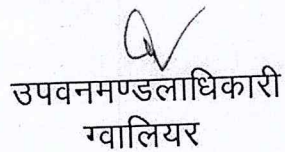 उपवनमण्डलाधिकारी
ग्वालियर